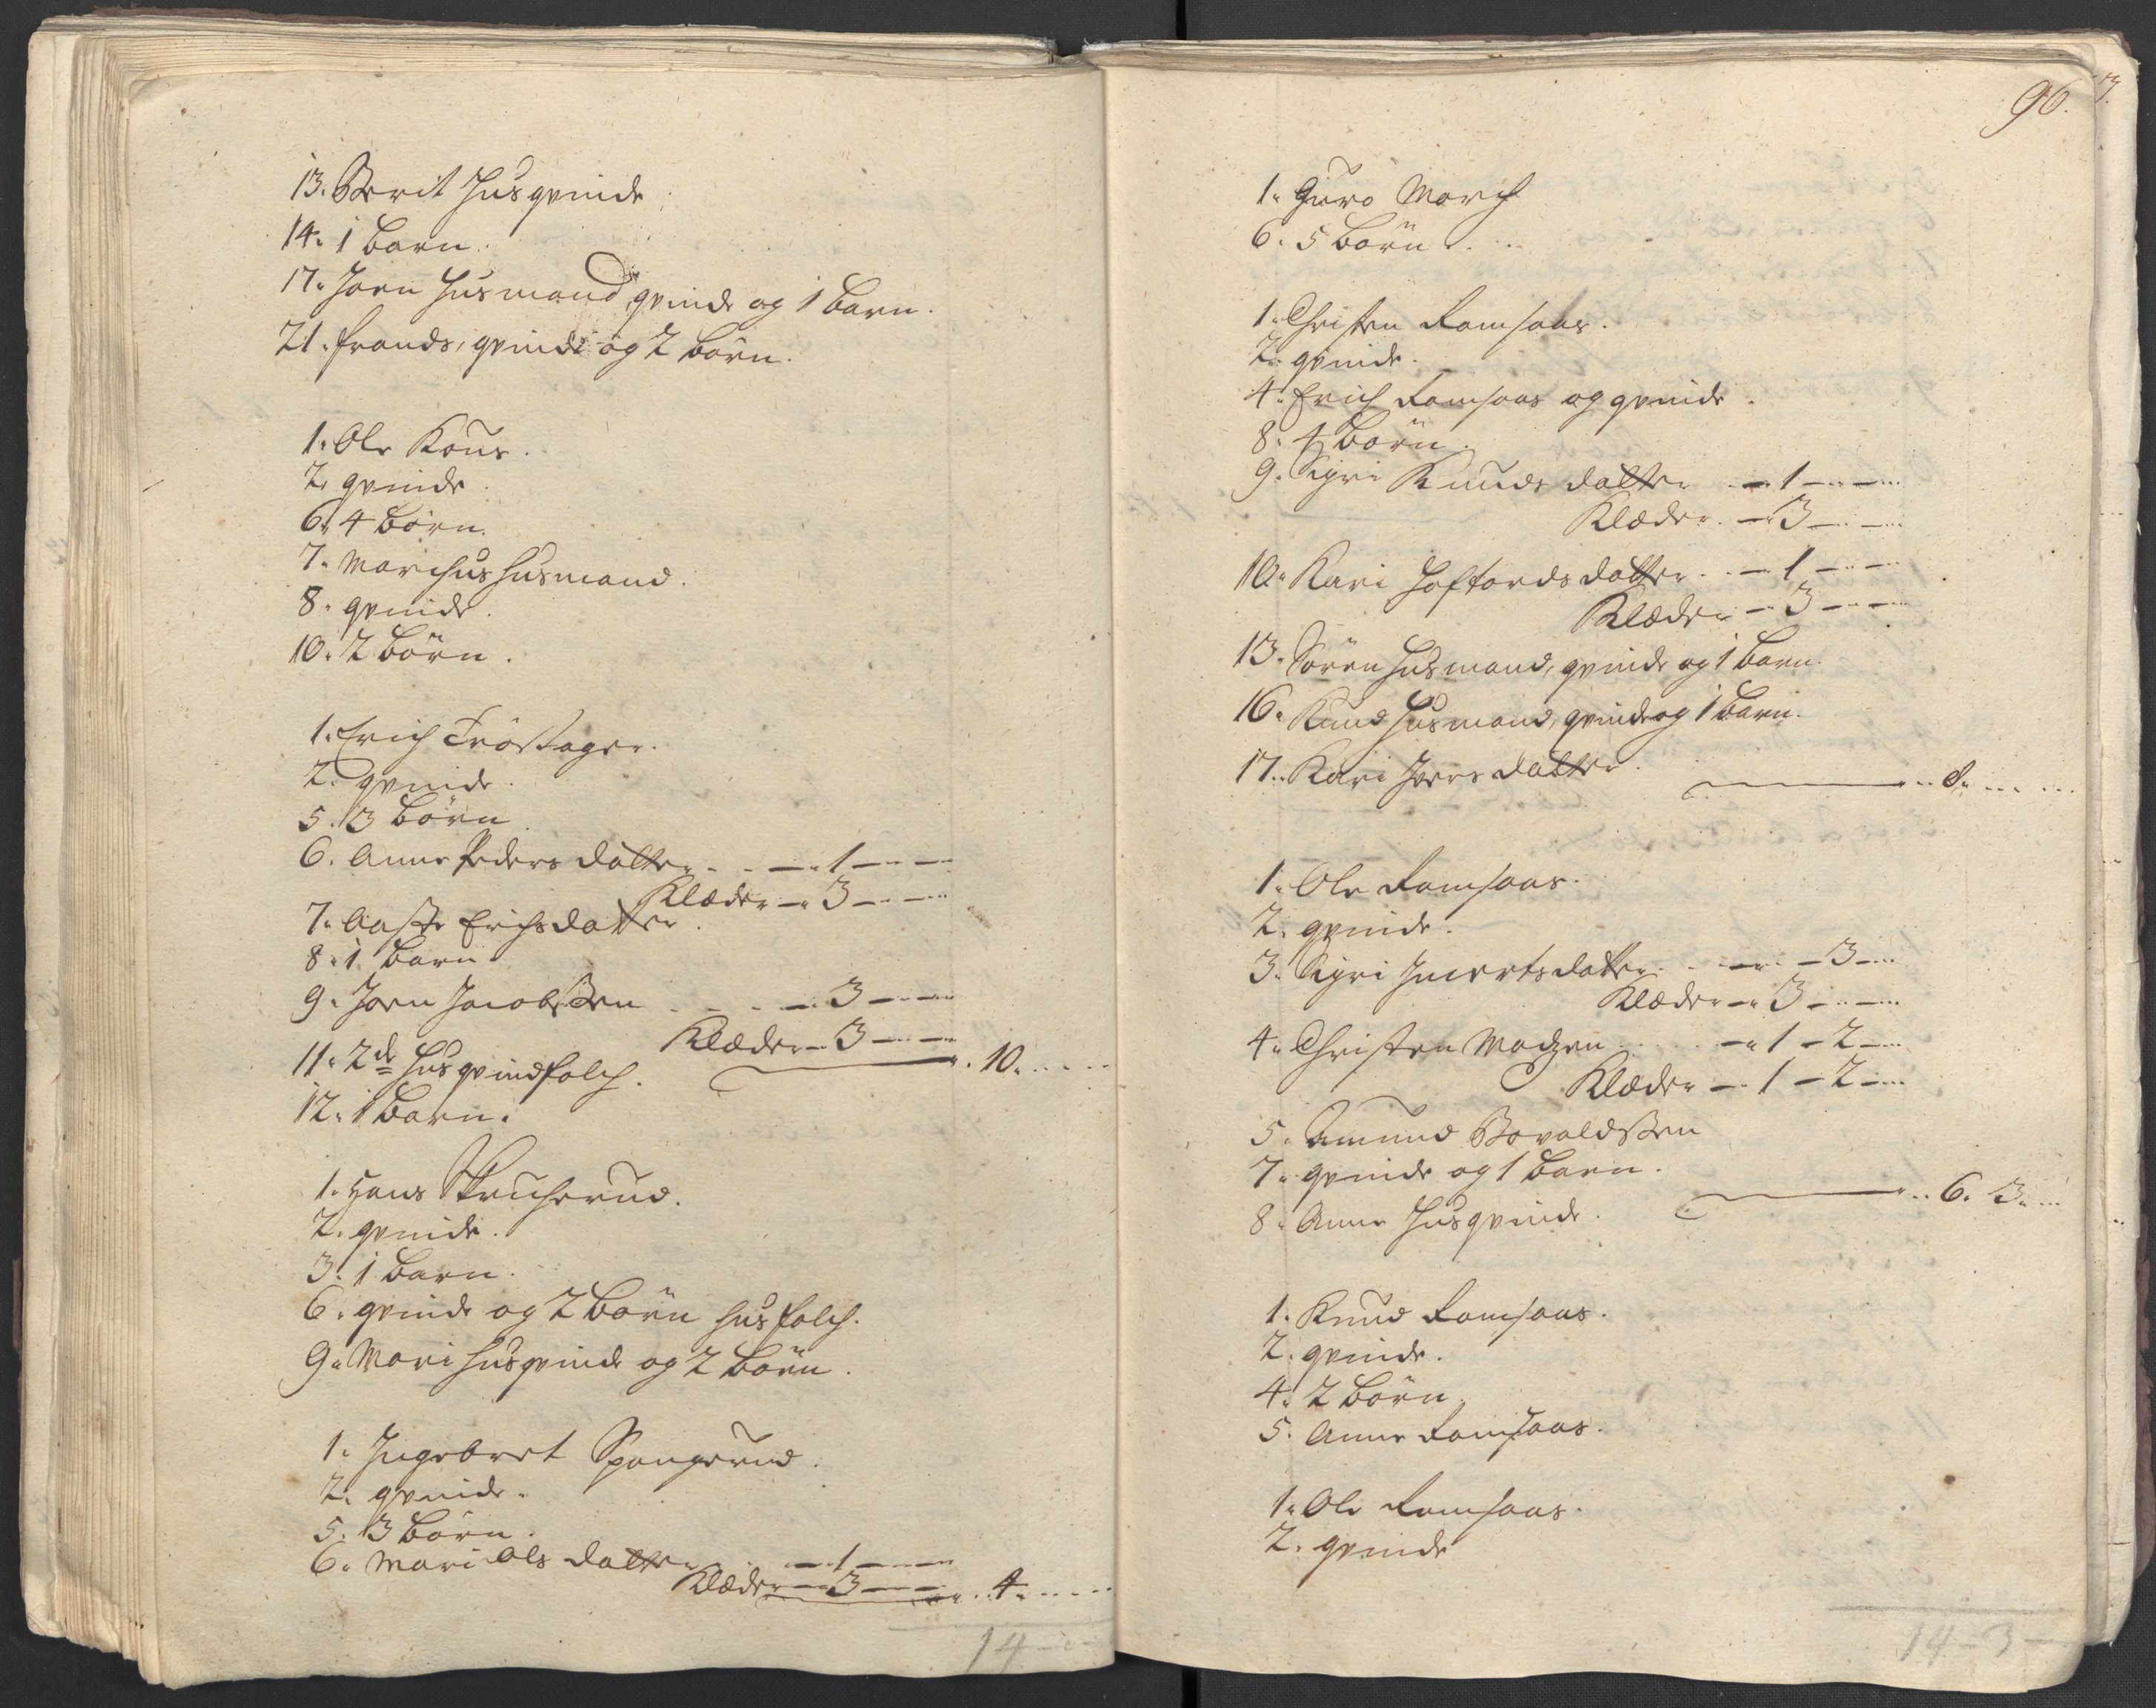 13. Berit Huusqvinde
14. 1 barn.
17. Joen Huusmand, qvinde og 1 barn.
21. Frands, qvinde og 2 börn.
1. Ole
2. qvinde.
6. 4 börn.
7. Marchus huusmand.
8. qvinde.
10. 2 börn.
1. Erich Fröstager.
2. qvinde.
5. 3 börn
6. Anne Peders datter . . — 1 — —
Klæder — 3 — —
7. Aaste Erichsdatter.
8. 1 barn
9. Joen Jacobssen . . . — 3 — —
Klæder — 3 — —
11. 2de Huus qvindfolch. . 10. . . .
12. 1 barn.
1. Hans
2. qvinde.
3. 1 barn.
6. qvinde og 2 börn huusfolch.
9. Mari huusqvinde og 2 börn.
1. Ingebret Spangerud.
2. qvinde.
5. 3 börn.
6. Mari Ols datter . . — 1 — —
Klæder — 3 — — . . 4. . . .
14 - -
96.
1. Guro March
6. 5 börn . . .
1. Christen Ramsaas.
2. qvinde.
4. Erich Ramsaas og qvinde.
8. 4 börn.
9. Sigri Knuds datter . — 1 — —
Klæder. — 3 — —
10. Kari Hoftords datter . . — 1 — —
Klæder — 3 — —
13. Sören Huusmand, qvinde og 1 barn.
16. Knud Huusmand, qvinde og 1 barn.
17. Kari Ivers datter. . . 8. . . .
1. Ole Ramsaas.
2. qvinde.
3. Sigri datter. . — — 3 —
Klæder — 3 — —
4. Christen Madzen . . . — 1 — 2 —
Klæder — 1 — 2 —
5. Amund
7. qvinde og 1 barn.
8. Anne Huusqvinde. . . 6. 3. . .
1. Knud Ramsaas.
2. qvinde.
4. 2 börn.
5. Anne Ramsaas.
1. Ole Ramsaas.
2. qvinde
14 - 3 -